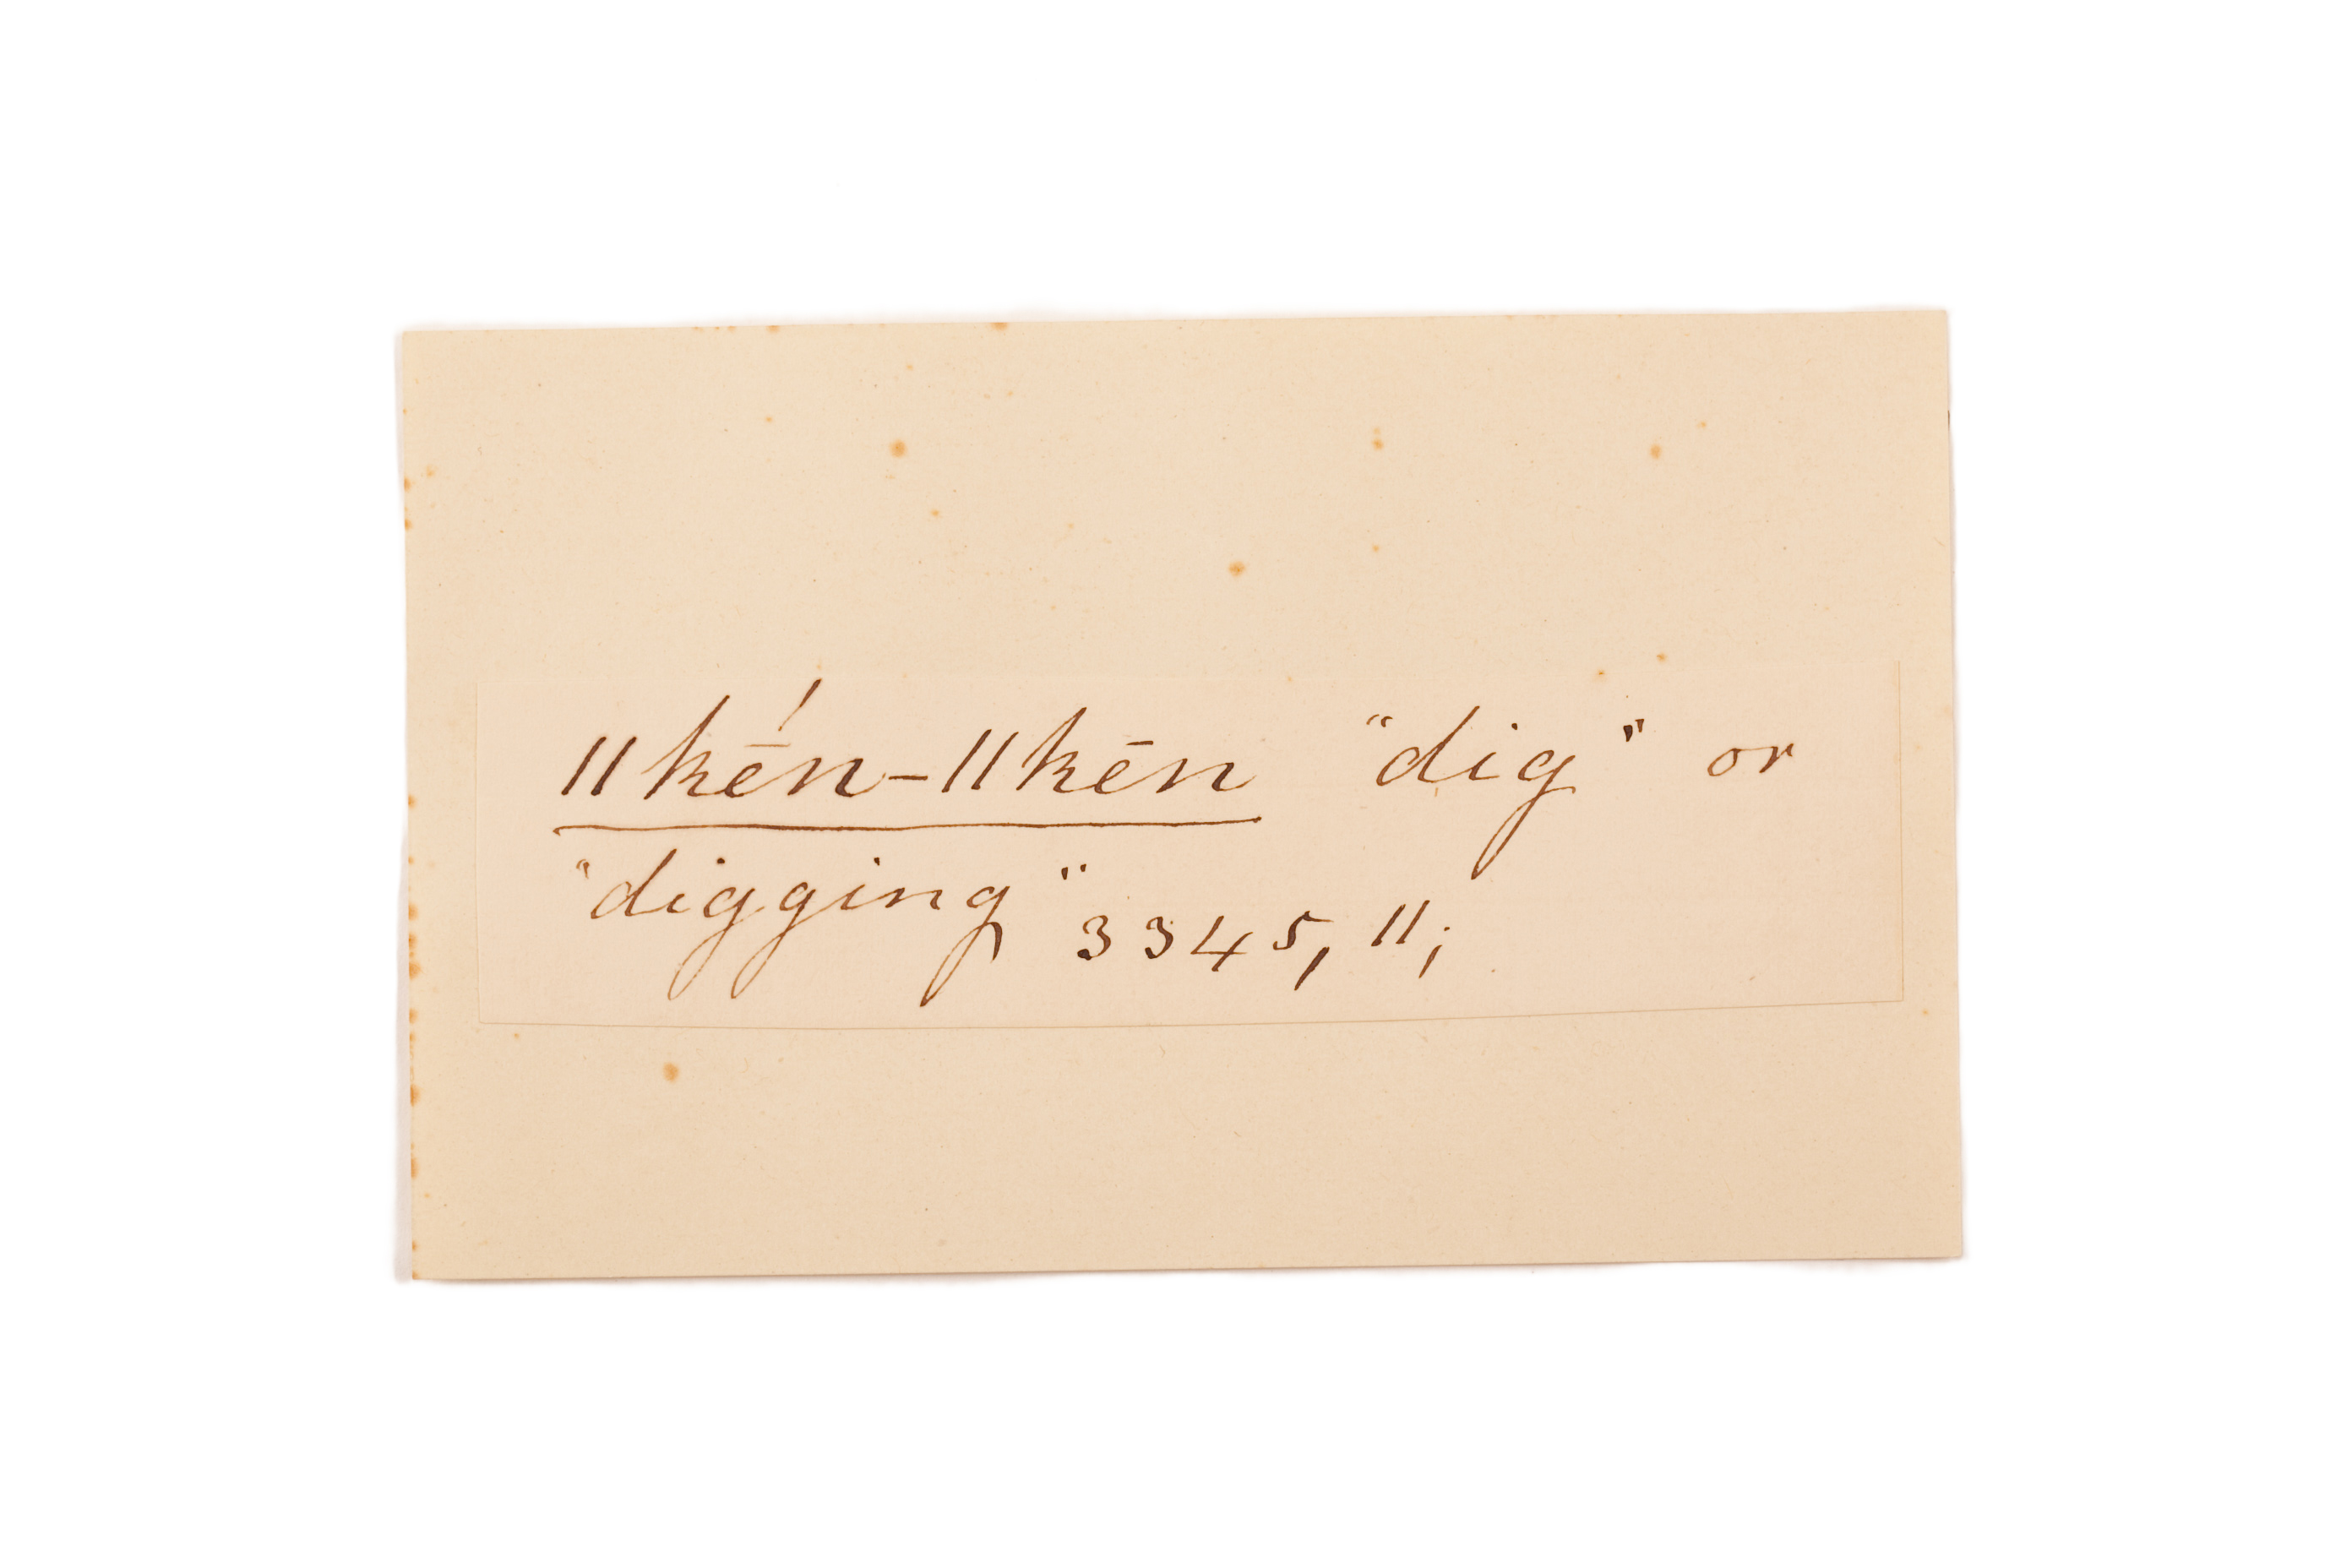 ǁkḗn-ǁkēn "dig" or
"digging" 3345, 11;